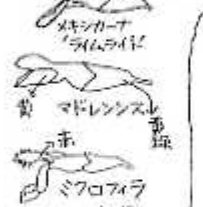 メキシカーナ
"ライムライト"
黄
マドレンシス
黄緑
赤
ミクロフィラ